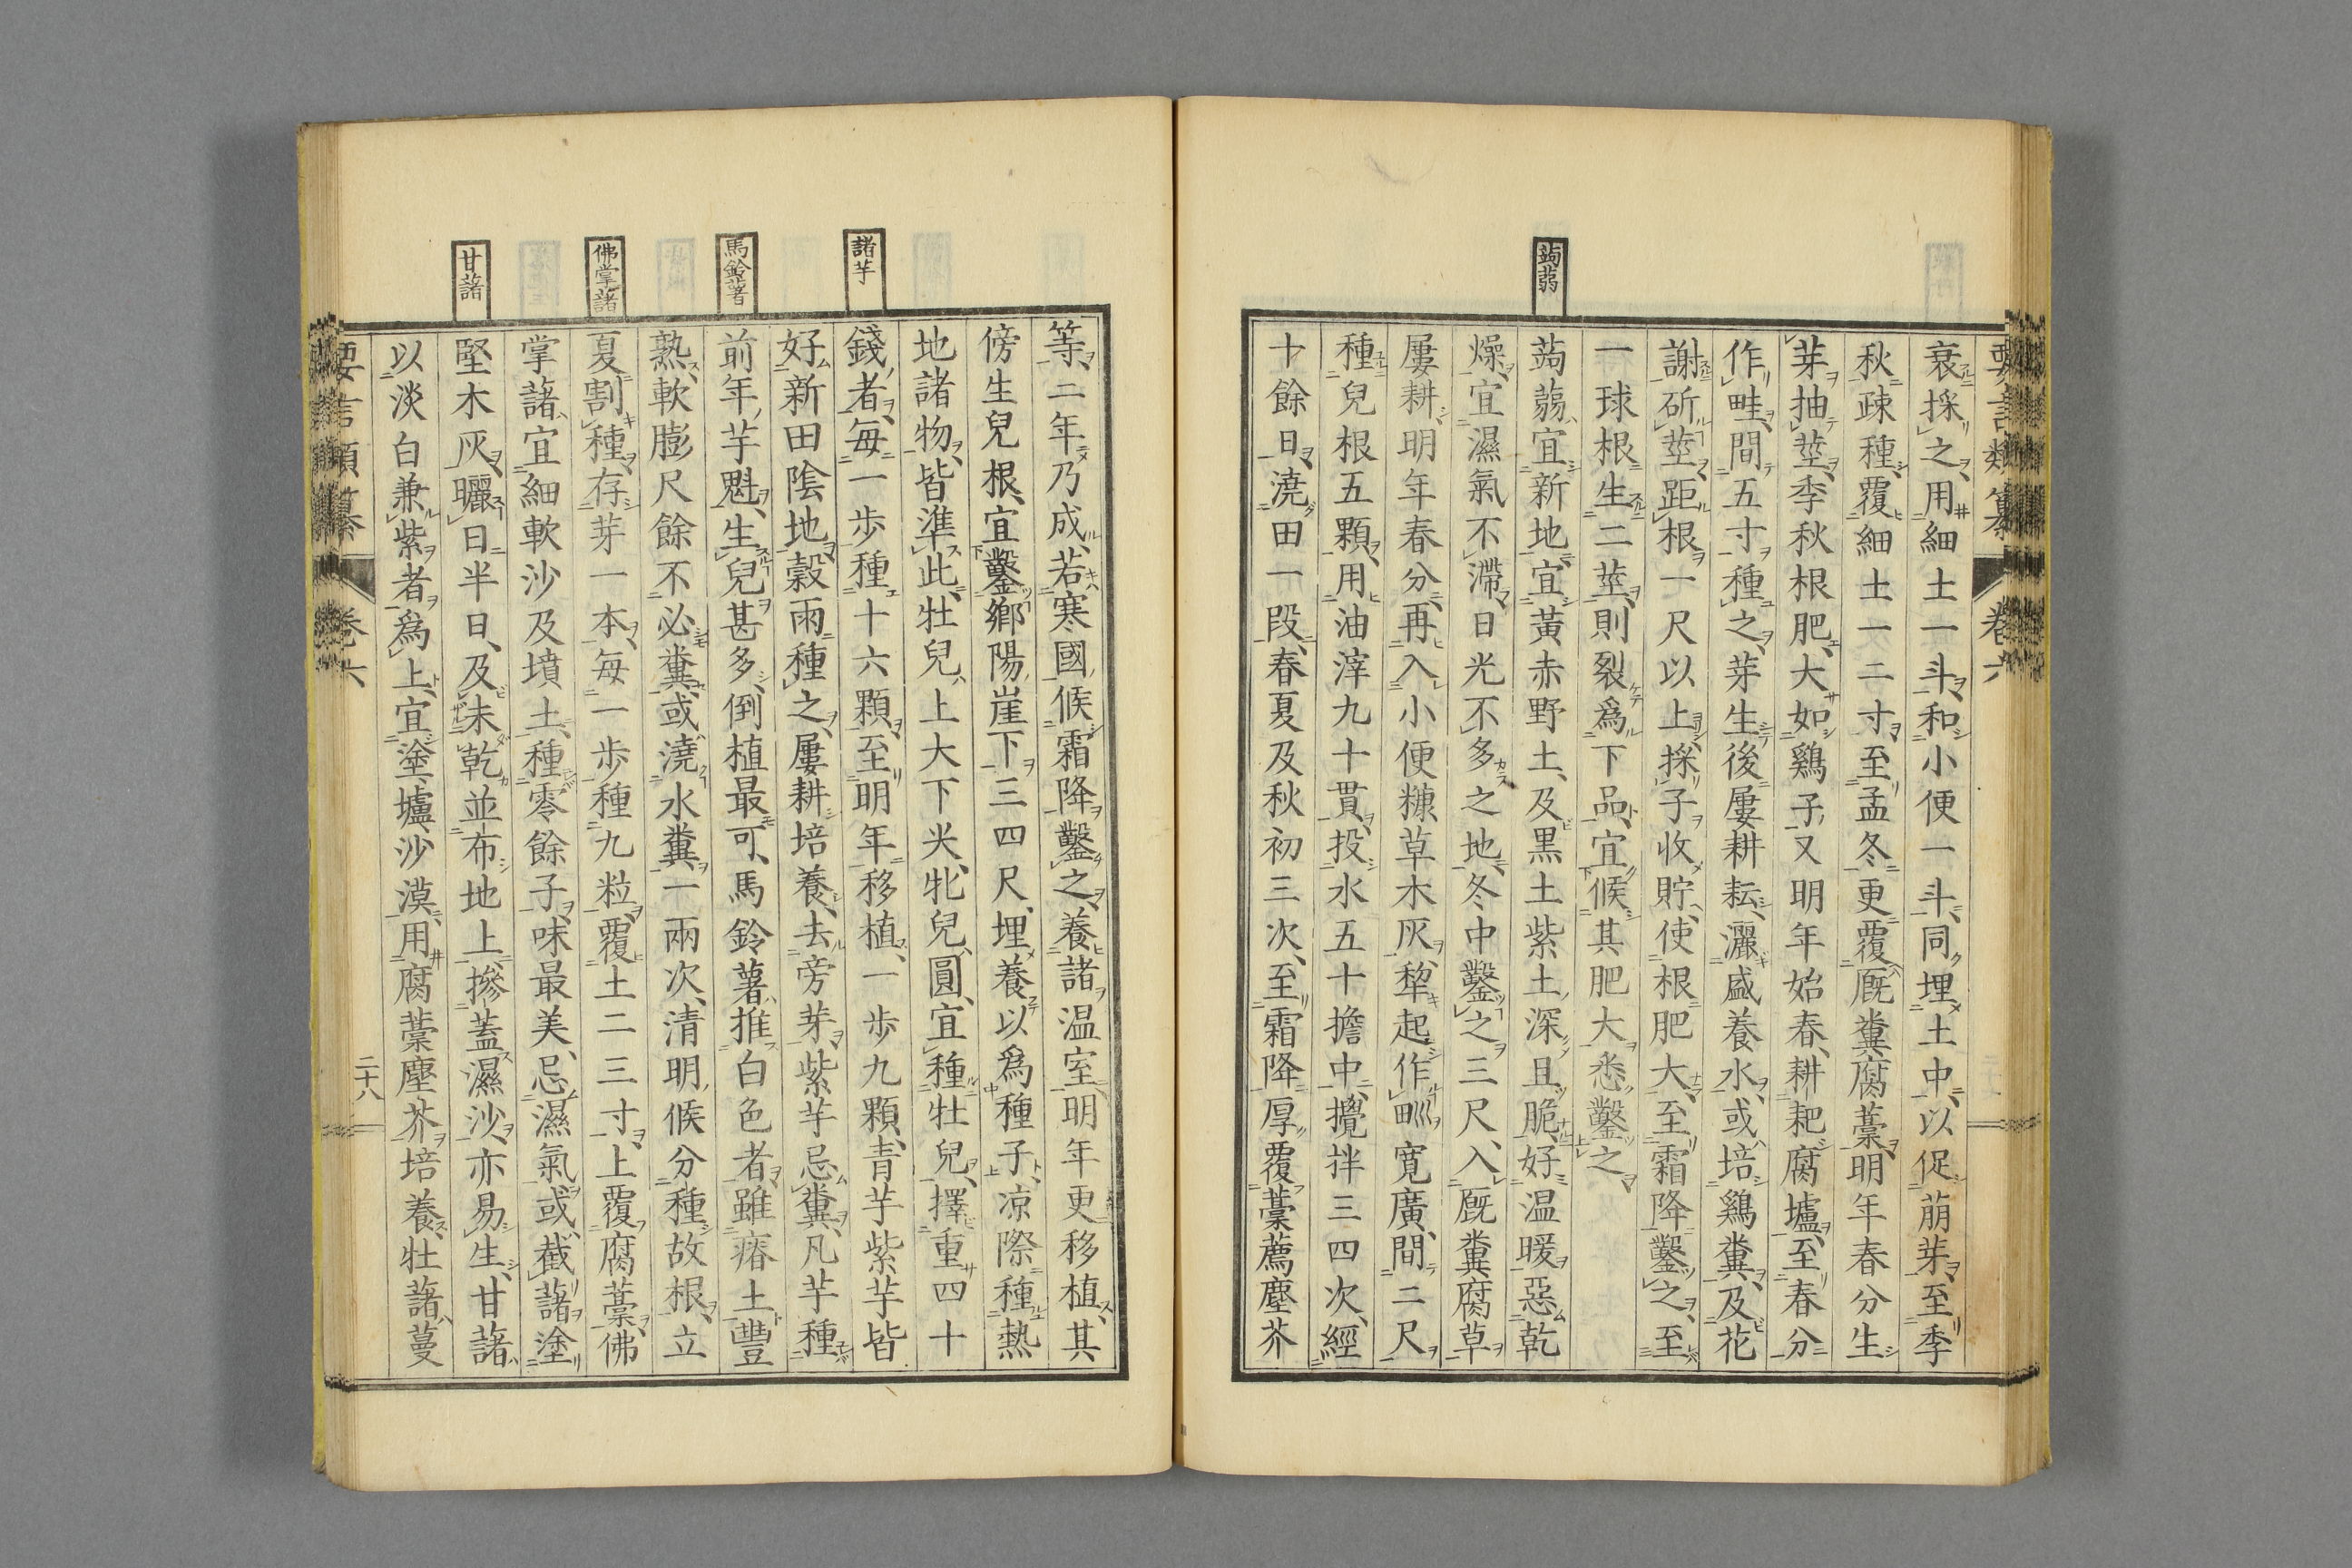 蒟蒻
衰採之用細土一斗和小便一斗同埋土中以促萠芽至季
秋疎種覆細土一二寸至孟冬更覆厩糞腐藁明年春分生
芽抽莖季秋根肥大如鷄子又明年始春耕耙腐壚至春分
作畦間五寸種之芽生後屢耕耘灑盛養水或培鷄糞及花
謝斫莖距根一尺以上採子收貯使根肥大至霜降鑿之至
一球根生二莖則裂爲下品宜候其肥大悉鑿之
蒟蒻宜新地宜黃赤野土及黒土紫土深且脆好温暖惡乾
燥宜濕氣不滯日光不多之地冬中鑿之三尺入厩糞腐草
屢耕明年春分再入小便糠草木灰犂起作甽寛廣間二尺
種兒根五顆用油滓九十貫投水五十擔中攪拌三四次經
十餘日澆田一段春夏及秋初三次至霜降厚覆藁薦塵芥
諸芋
馬鈴薯
佛掌藷
甘藷
等二年乃成若寒國候霜降鑿之養諸温室明年更移植其
傍生兒根宜鑿鄉陽崖下三四尺埋養以爲種子凉際種熱
地諸物皆準此牡兒上大下尖牝兒圓宜種牡兒擇重四十
錢者毎一歩種十六顆至明年移植一歩九顆青芋紫芋皆
好新田陰地穀雨種之屢耕培養去旁芽紫芋忌糞凡芋種
前年芋魁生兒甚多倒植最可馬鈴薯推白色者雖瘠土豐
熟軟膨尺餘不必糞或澆水糞一兩次清明候分種故根立
夏割種存芽一本毎一歩種九粒覆土二三寸上覆腐藁佛
掌藷宜細軟沙及墳土種零餘子味最美忌濕氣或截藷塗
堅木灰曬日半日及未乾並布地上摻蓋濕沙亦易生甘藷
以淡白兼紫者爲上宜塗壚沙漠用腐藁塵芥培養牡藷蔓
要言類纂
卷六
二十八